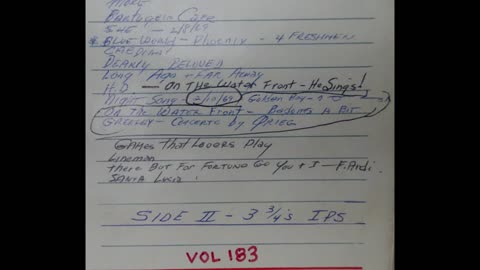 SHE — 2/8/69
* BLUE WORLD - Phoenix - 4 FRESHMEN
DEARLY BELOVED
LONG AGO + FAR AWAY
H.O — ON THE WATER FRONT - He Sings!
NIGHT SONG 2/10/69 Golden Boy -
ON THE WATER FRONT - A BIT
CONCERTO by GRIEG
GAMES THAT LOVERS PLAY
Lineman
There But For FORTUNE Go You + I — F.
SANTA LUCIA.
SIDE II - 3 3/4's IPS
VOL 183